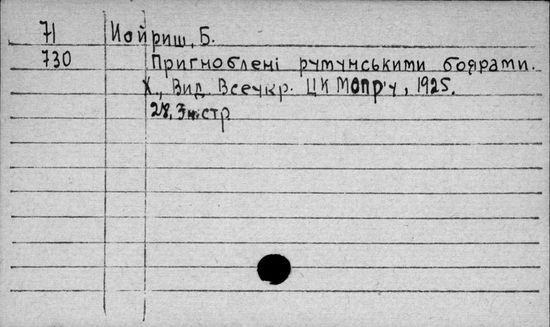 71 Иойриш, Б.
730 Пригноблені румунськими боярами.
Х., Вид. Всеукр. ЦК МОПР'у, 1925.
28, 3 стр